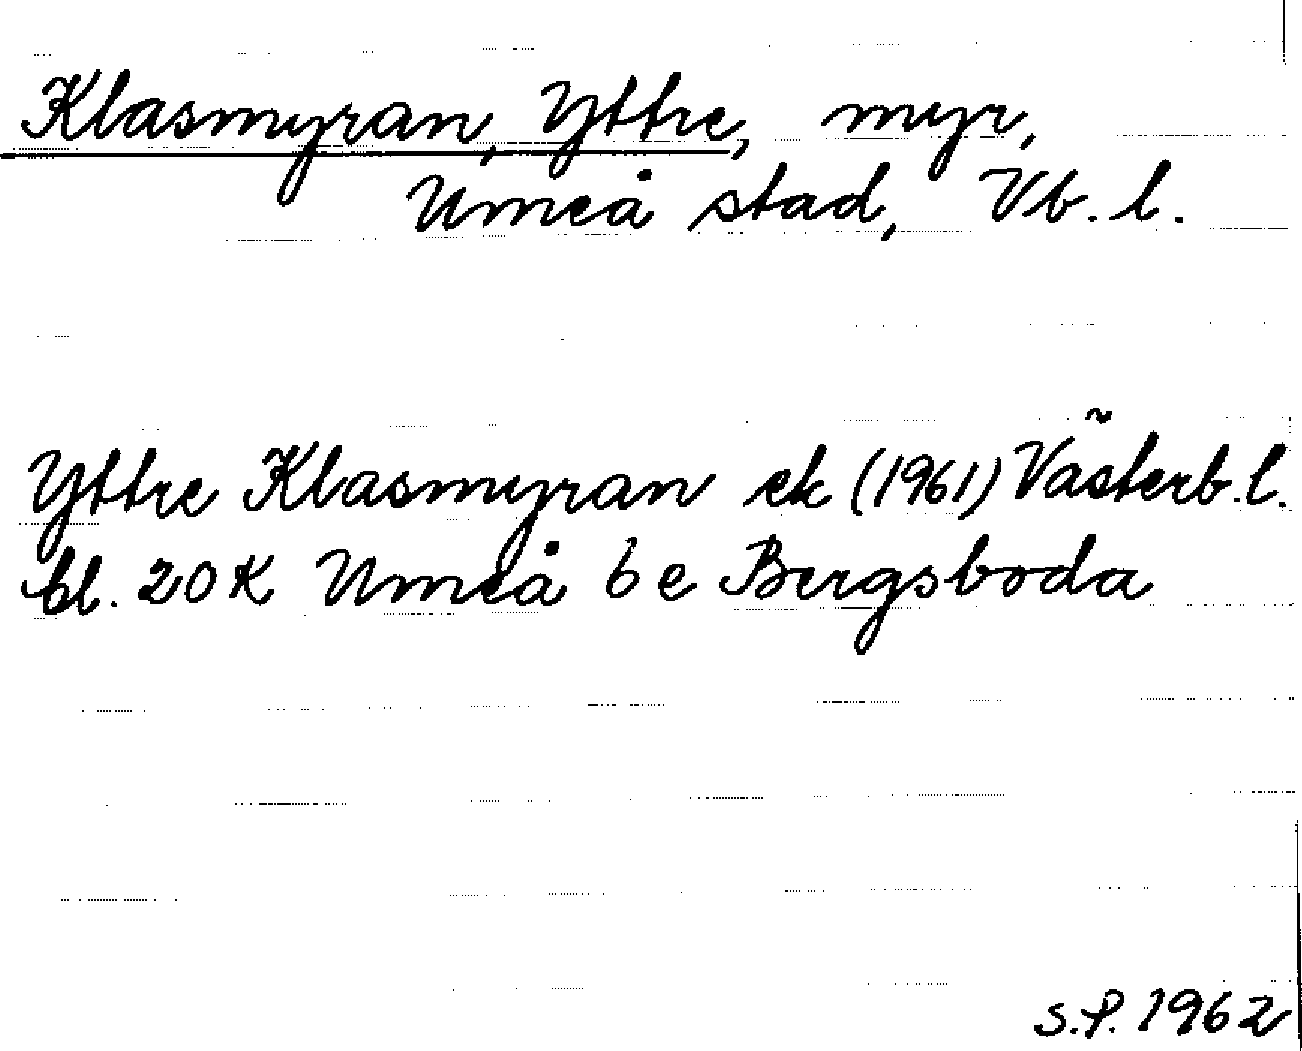 Klasmyran, Yttre, myr,
Umeå stad, Vb. l.
Yttre Klasmyran ek (1961) Västerb. l.
bl. 20 K Umeå 6 e Bergsboda
S.P. 1962